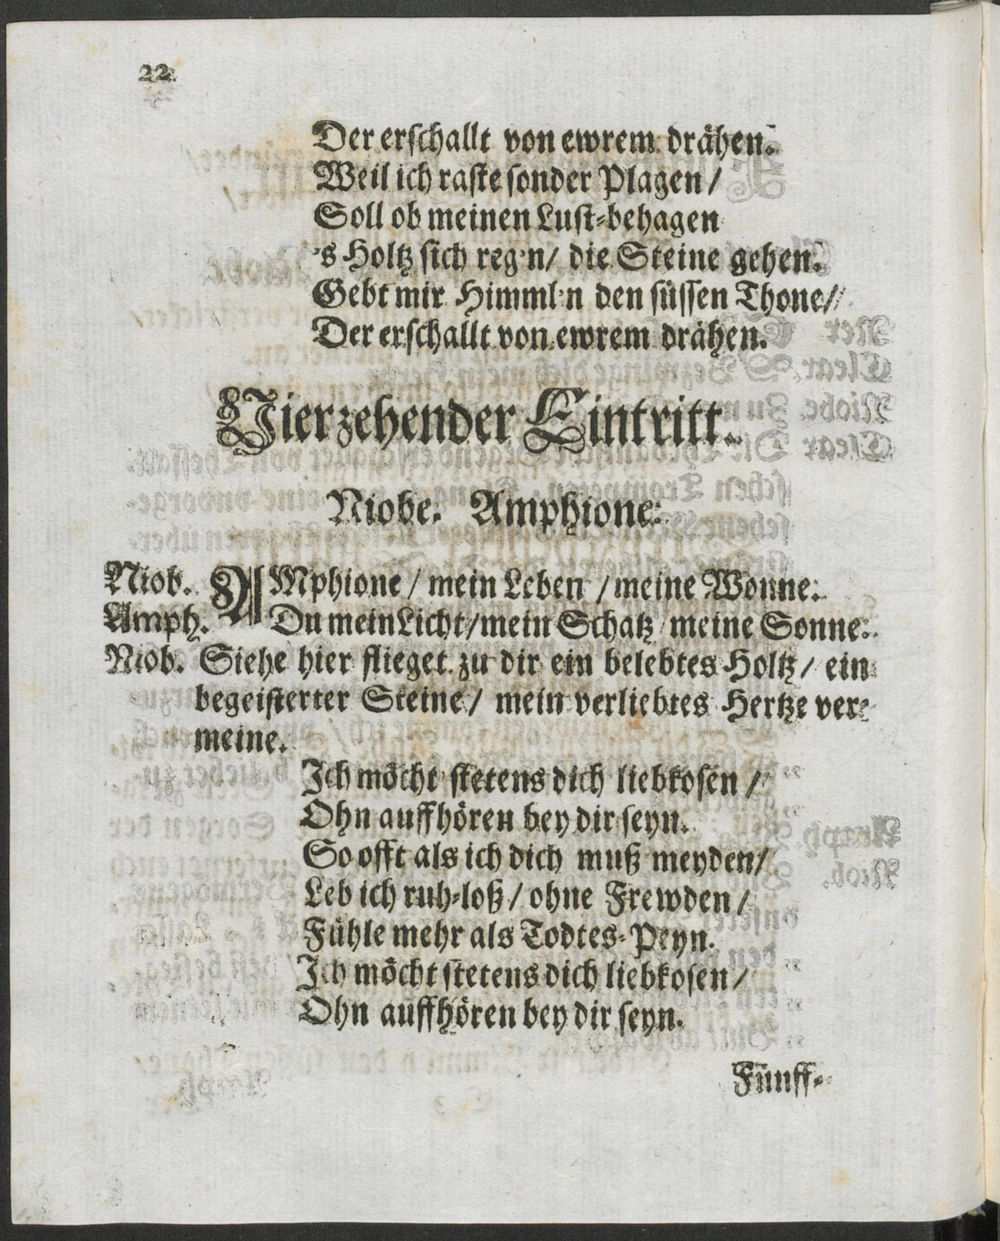 22
Der erschallt von ewrem drähen.
Weil ich raste sonder Plagen/
Soll ob meinen Lust-behagen
's Holtz sich reg'n/ die Steine gehen.
Gebt mir Himml'n den süssen Thone/
Der erschallt von ewrem drähen.
Vierzehender Eintritt.
Niobe. Amphione.
Niob. AMphione / mein Leben / meine Wonne.
Amph. Du mein Licht/mein Schatz meine Sonne.
Niob. Siehe hier flieget zu dir ein belebtes Holtz/ ein
begeisterter Steine/ mein verliebtes Hertze ver-
meine.
Ich möcht stetens dich liebkosen /
Ohn auffhören bey dir seyn.
So offt als ich dich muß meyden/
Leb ich ruh-loß / ohne Frewden /
Fühle mehr als Todtes-Peyn.
Ich möcht stetens dich liebkosen/
Ohn auffhören bey dir seyn.
Fünff-